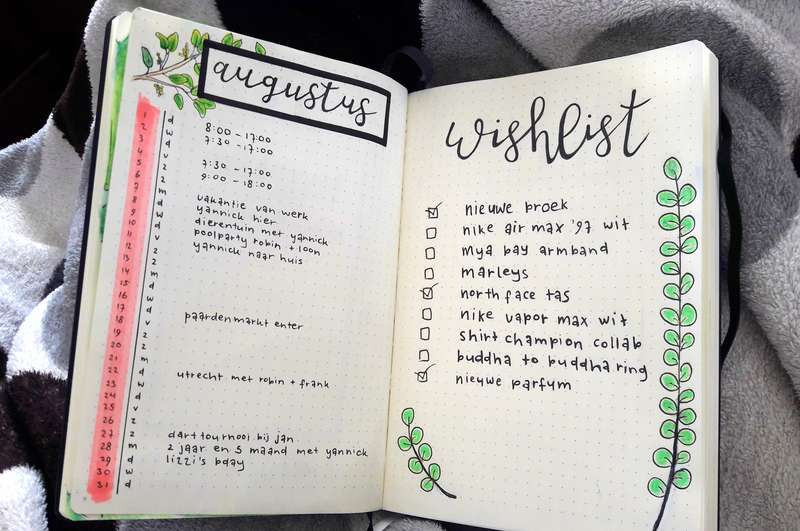 augustus
1 d
2 w
3 d
4 v
5 z
6 z
7 m
8 d
9 w
10 d
11 v
12 z
13 z
14 m
15 d
16 w
17 d
18 v
19 z
20 z
21 m
22 d
23 w
24 d
25 v
26 z
27 z
28 m
29 d
30 w
31 d
8:00 - 17:00
7:30 - 17:00
7:30 - 17:00
9:00 - 18:00
vakantie van werk
yannick hier
dierentuin met yannick
poolparty robin + loon
yannick naar huis
paardenmarkt enter
utrecht met robin + frank
darttournooi bij jan
2 jaar en 5 maand met yannick
lizzi's bday
wishlist
nieuwe broek
nike air max '97 wit
mya bay armband
marleys
north face tas
nike vapor max wit
shirt champion collab
buddha to buddha ring
nieuwe parfum